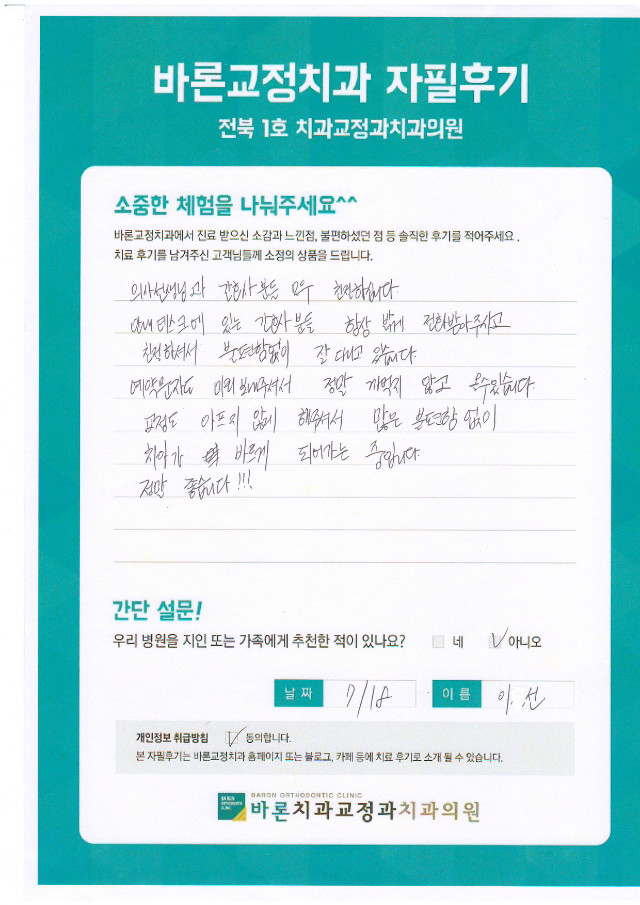 바론교정치과 자필후기
전북 1호 치과교정과치과의원
소중한 체험을 나눠주세요^^
바론교정치과에서 진료 받으신 소감과 느낀점, 불편하셨던 점 등 솔직한 후기를 적어주세요 .
치료 후기를 남겨주신 고객님들께 소정의 상품을 드립니다.
의사선생님과 간호사분들 모두 친절하십니다
안내데스크에 있는 간호사분들 항상 밝게 전화받아주시고
친절하셔서 불편함없이 잘 다니고 있습니다.
예약문자도 미리 보내주셔서 정말 까먹지 않고 올수있습니다.
교정도 아프지 않게 해주셔서 많은 불편함 없이
치아가 바르게 되어가는 중입니다.
정말 좋습니다!!!
간단 설문!
우리 병원을 지인 또는 가족에게 추천한 적이 있나요? 네 아니오
날 짜 7/18 이 름 이. 선
개인정보 취급방침 동의합니다.
본 자필후기는 바론교정치과 홈페이지 또는 블로그, 카페 등에 치료 후기로 소개 될 수 있습니다.
BARON ORTHODONTIC CLINIC
바론치과교정과치과의원